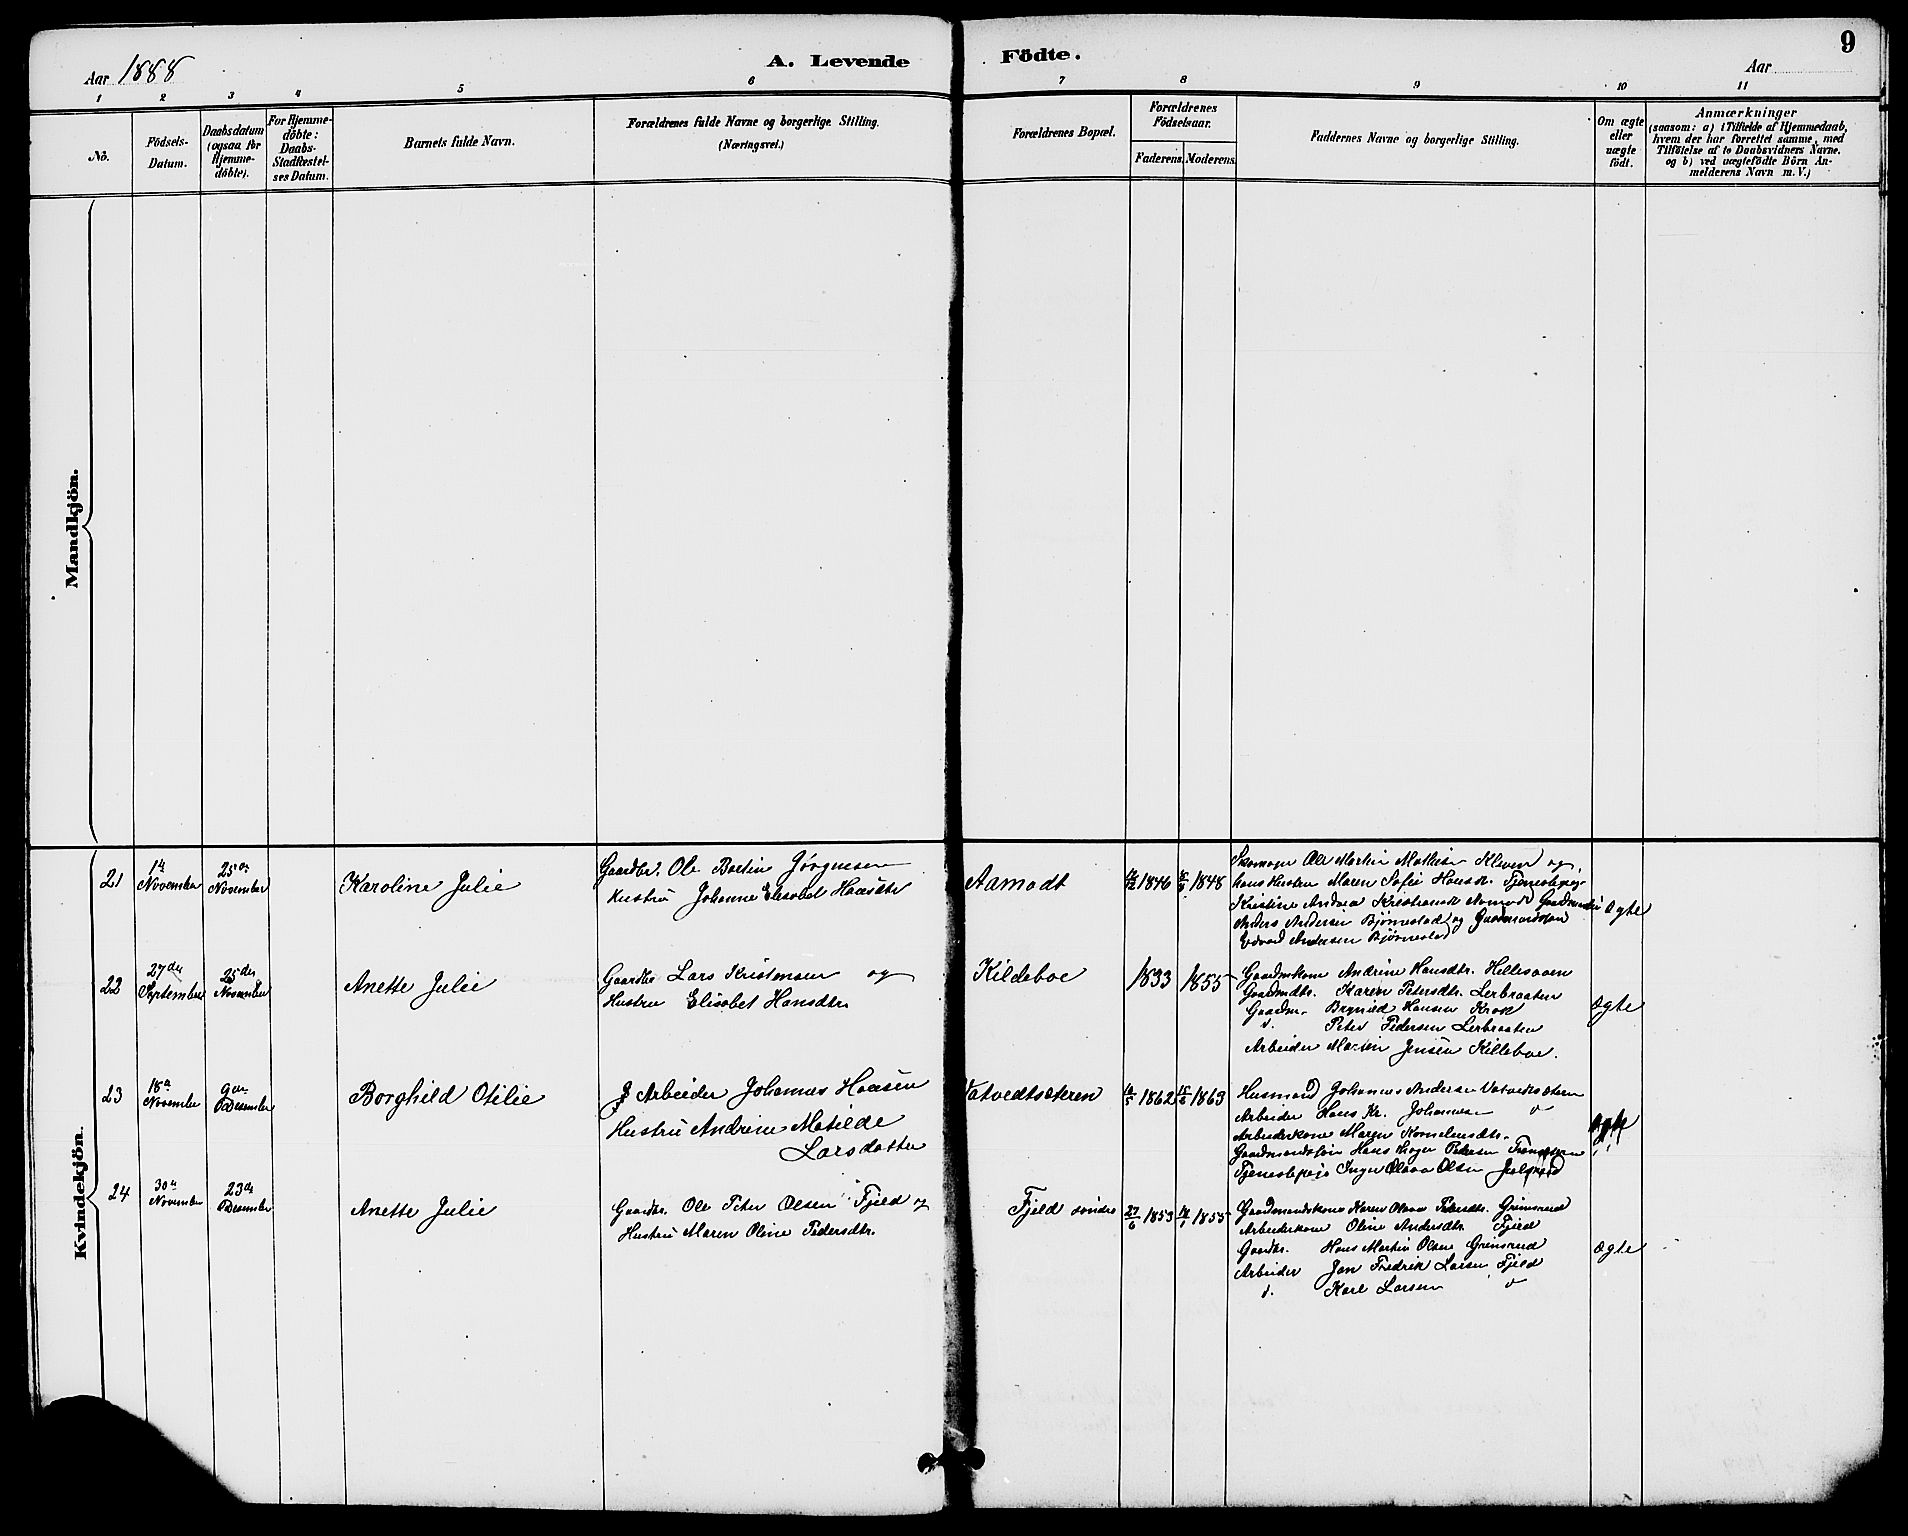 9
A. Levende Födte.
Aar 1888
Aar
1 2 3 4 5 6 7 8 9 10 11
No.
Födsels-
Datum.
Daabsdatum
(ogsaa for
Hjemme-
döbte).
For Hjemme-
döbte:
Daabs-
Stadfæstel-
ses Datum.
Barnets fulde Navn.
Forældrenes fulde Navne og borgerlige Stilling.
(Næringsvei.)
Forældrenes Bopæl.
Forældrenes
Födselsaar.
Faderens. Moderens.
Faddernes Navne og borgerlige Stilling.
Om ægte
eller
uægte
födt.
Anmærkninger
(saasom: a) i Tilfælde af Hjemmedaab,
hvem der har forrettet samme, med
Tilföielse af to Daabsvidners Navne.
og b) ved uægtefödte Börn An-
melderens Navn m. V.)
Mandkjön.
Kvindekjön.
21
November
November
Karoline Julie
Gaardbr. Ole Bastin Jørgensen
Hustru Johanne Elisabet Hansdtr
Aamodt
1846
1848
Skomager Ole Martin Mathisen Kleven og
hans Hustru Maren Sofie Hansdr. Tjenestepige
Kristine Andrea Kristiansdr Aamodt
Anders Andersen Bjørnestad og Gaardmandssøn
Edvard Andersen Bjørnestad
Ægte
22
27de
September
25de
November
Anette Julie
Gaardbr Lars Kristensen og
Hustru Elisabet Hansdtr.
Kildeboe
1833
1855
Gaardmkone Andrine Hansdtr. Hellesaaen
Gaardmdtr. Karen Petersdtr. Lerbraaten
Gaardm. Brynild Hansen Krok
d. Peter Pedersen Lerbraaten
Arbeider Martin Jensen Killeboe.
Ægte
23
18
November
9
Desember
Borghild Otilie
Arbeider Johannes Hansen
Hustru Andrine Matilde
Larsdatter
Vatvedtsæteren
1862
1863
Husmand Johannes Andersen Vatvedtsæteren
Arbeider Hans Kr. Johannesen
Arbeiderkone Maren Korneliusdtr.
Gaardmandssøn Hans Petersen
Tjenestepige Inger Olava Olsen
Ægte
24
30
November
23de
Desember
Anette Julie
Gaardbr. Ole Peter Olsen Fjeld og
Hustru Maren Oline Pedersdtr.
Fjeld søndre
27/6 1853
1855
Gaardmandskone Karen Olava Pedersdtr. Grimsrud
Arbeiderkone Oline Andersdtr. Fjeld
Gaardbr. Hans Martin Olsen Grimsrud
Arbeider Jon Fredrik Larsen Fjeld
d. Karl Larsen
Ægte